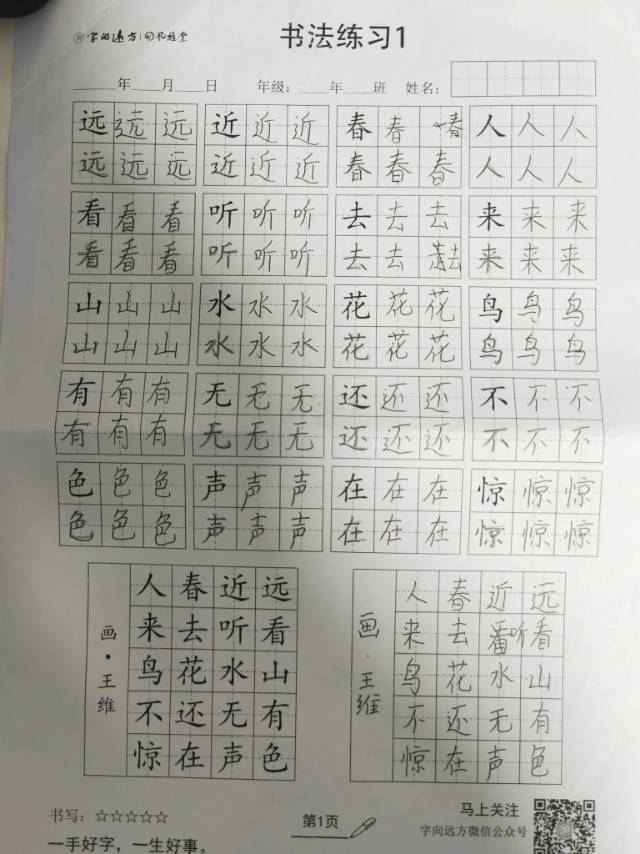 字向远方 | 习礼 堂
书法练习1
年 月 日 年级: 年 班 姓名:
远 远 远 近 近 近 春 春 春 人 人 人
远 远 远 近 近 近 春 春 春 人 人 人
看 看 看 听 听 听 去 去 去 来 来 来
看 看 看 听 听 听 去 去 去 来 来 来
山 山 山 水 水 水 花 花 花 鸟 鸟 鸟
山 山 山 水 水 水 花 花 花 鸟 鸟 鸟
有 有 有 无 无 无 还 还 还 不 不 不
有 有 有 无 无 无 还 还 还 不 不 不
色 色 色 声 声 声 在 在 在 惊 惊 惊
色 色 色 声 声 声 在 在 在 惊 惊 惊
画·王维
远看山有色
近听水无声
春去花还在
人来鸟不惊
画·王维
远看山有色
近听水无声
春去花还在
人来鸟不惊
书写:☆☆☆☆☆
一手好字,一生好事。
第1页
马上关注
字向远方微信公众号